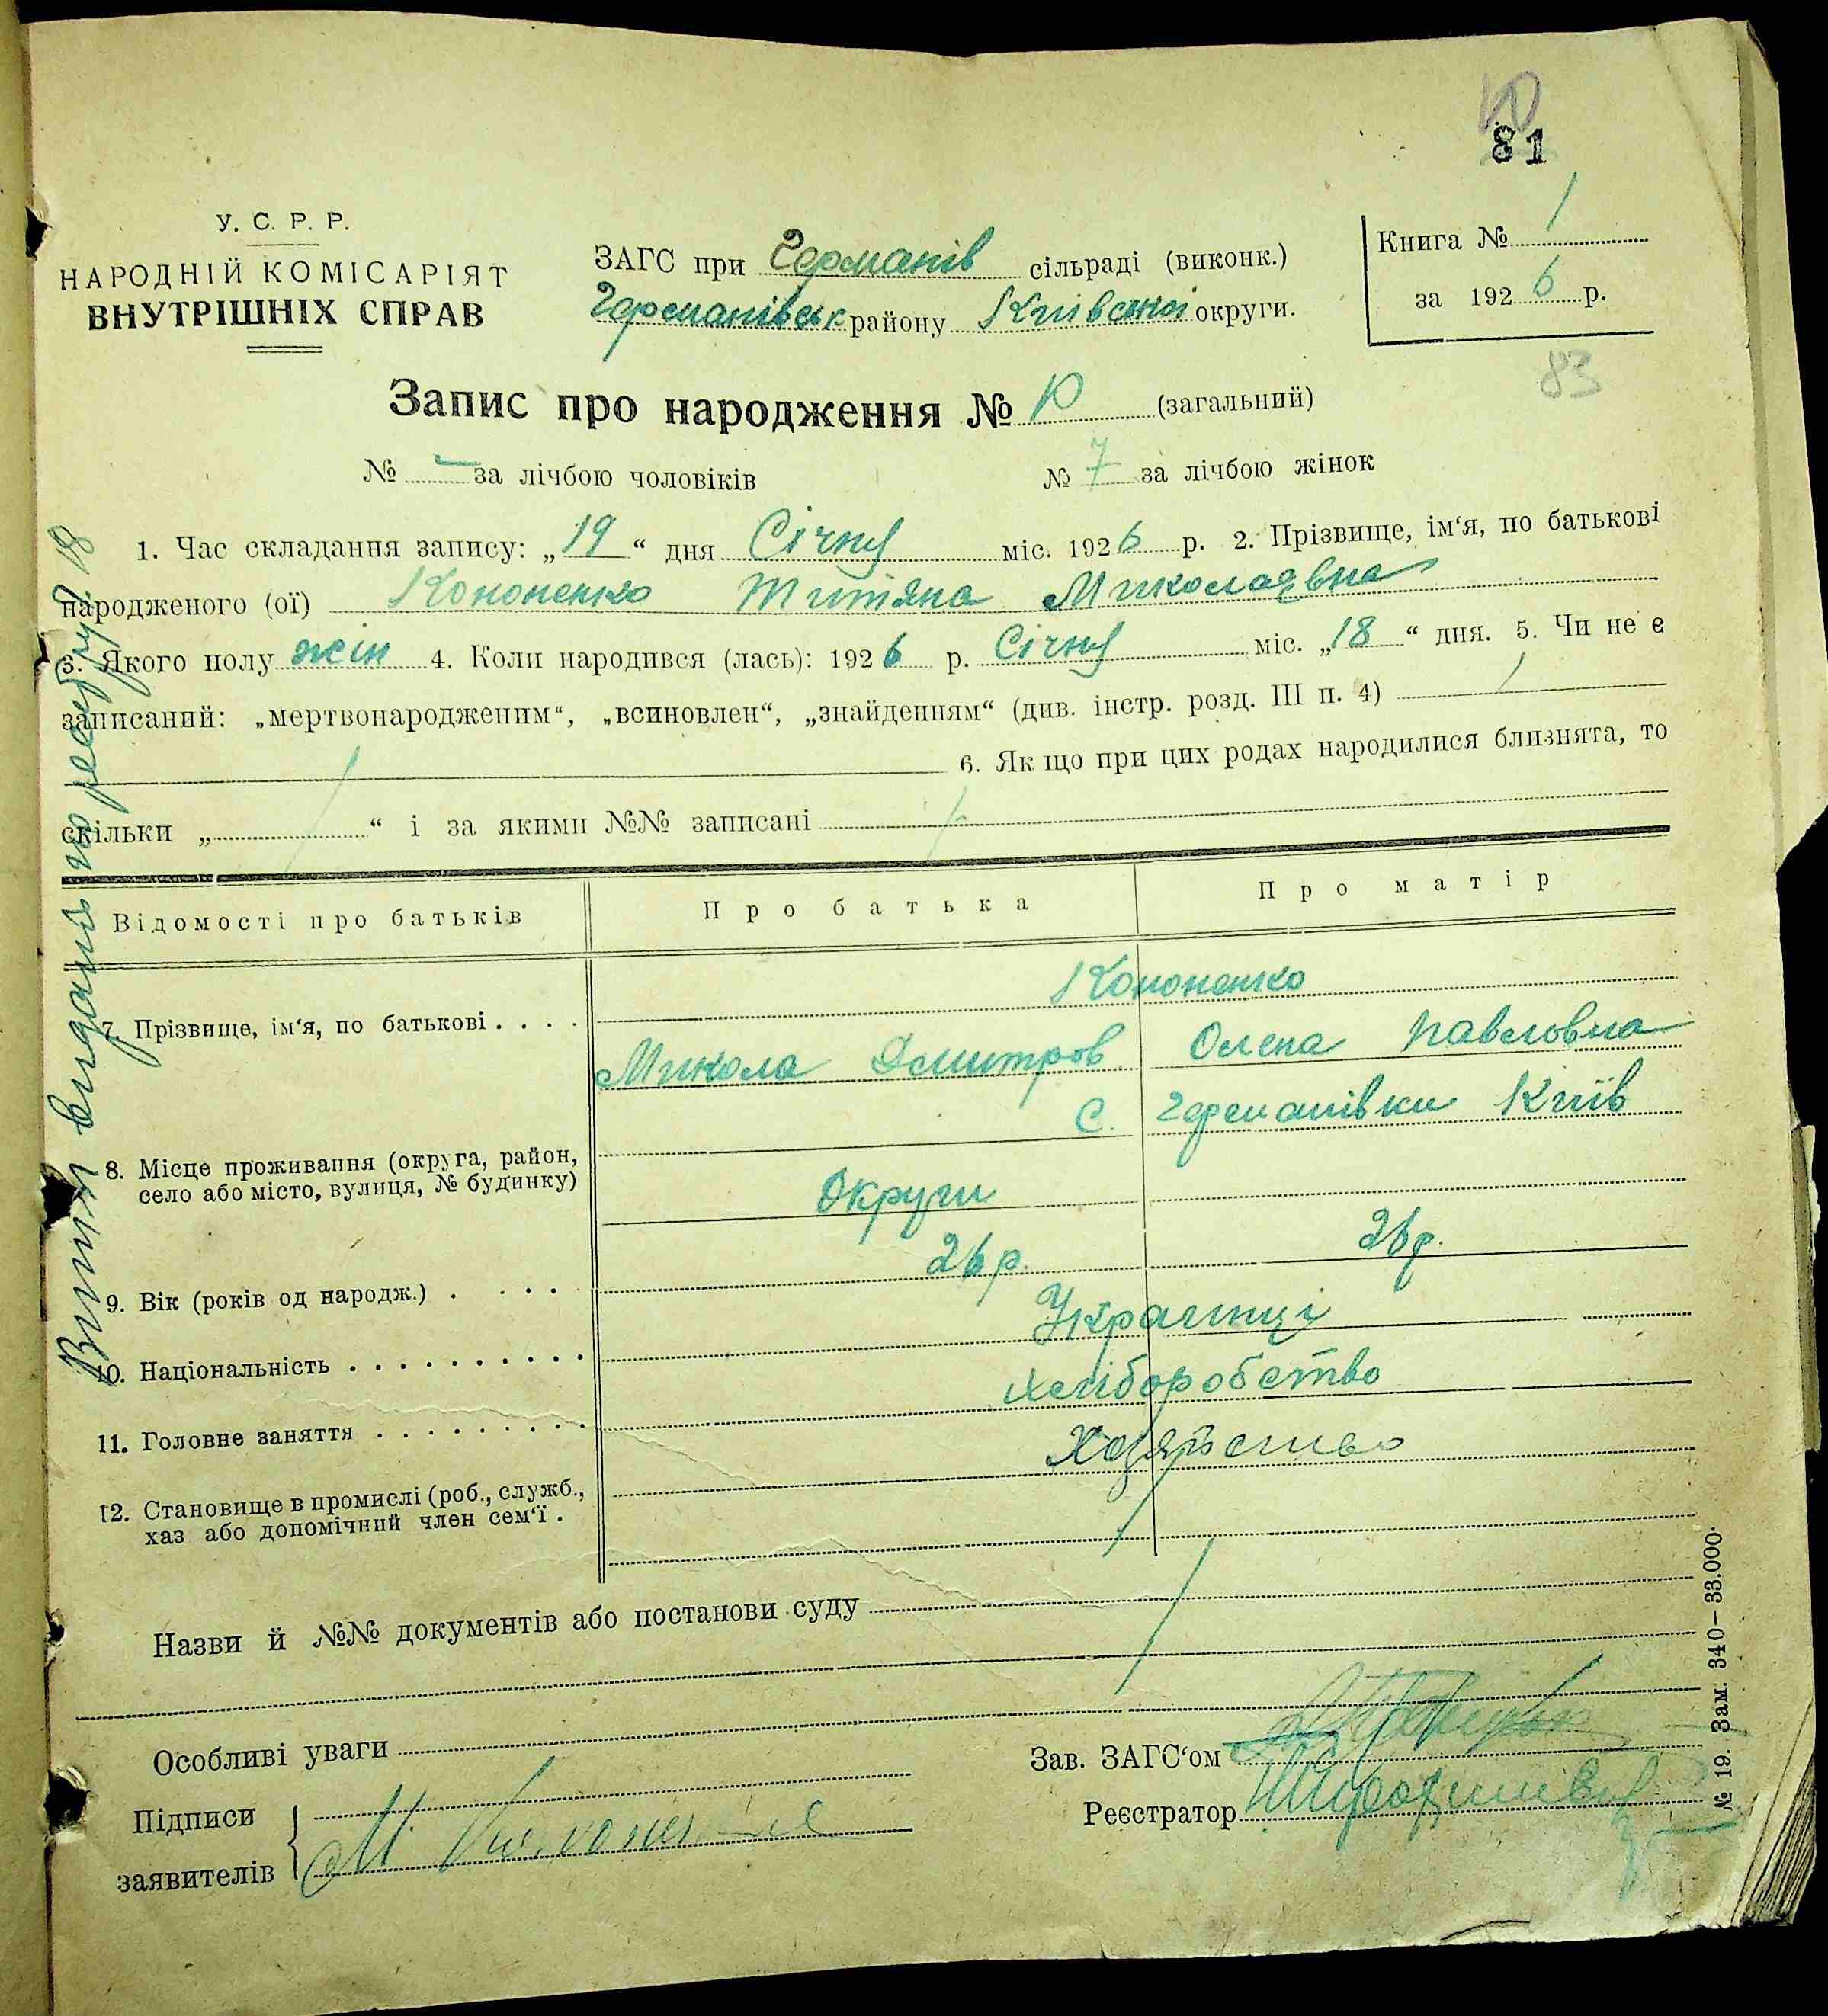 10
81
У. С. Р. Р.
НАРОДНІЙ КОМІСАРІЯТ
ВНУТРІШНІХ СПРАВ
ЗАГС при Германів сільраді (виконк.)
Германівськ району Київської округи.
Книга № 1
за 1926 р.
83
Запис про народження № 10 (загальний)
№ — за лічбою чоловіків № 7 за лічбою жінок
1. Час складання запису: „19“ дня Січня міс. 1926 р. 2. Прізвище, ім‘я, по батькові
народженого (ої) Кононенко Титяна Миколаєвна
3. Якого полу жін 4. Коли народився (лась): 1926 р. Січня міс. „18“ дня. 5. Чи не є
записаний: „мертвонародженим“, „всиновлен“, „знайденням“ (див. інстр. розд. III п. 4)
6. Як що при цих родах народилися близнята, то
скільки „ “ і за якими №№ записані
Відомості про батьків Про батька Про матір
Кононенко
7. Прізвище, ім‘я, по батькові . . . .
Микола Дмитров Олена Павловна
С. Германівки Київ
8. Місце проживання (округа, район,
село або місто, вулиця, № будинку)
Округи
26 р. 26 р.
9. Вік (років од народж.) . . . .
Українці
10. Національність . . . . . . . . . .
хліборобство
11. Головне заняття . . . . . . . . .
Хозяйство
12. Становище в промислі (роб., служб.,
хаз або допомічний член сем‘ї .
Назви й №№ документів або постанови суду
Особливі уваги
Зав. ЗАГС‘ом
Підписи
заявителів
М. Кононенко
Реєстратор
№ 19. Зам. 340—33.000.
Витяг видано